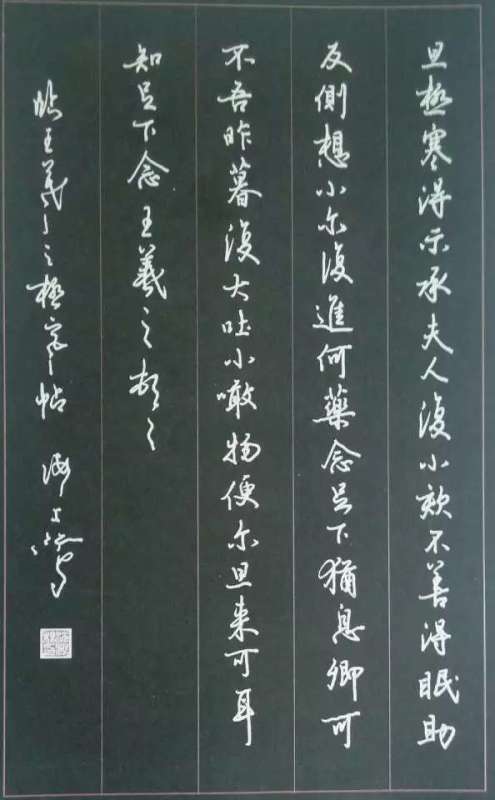 旦極寒得示承夫人復小欬不善得眠助
反側想小尔復進何藥念足下猶息卿可
不吾昨暮復大吐小噉物便尔旦来可耳
知足下念王羲之頓之
帖王羲之之極寒帖